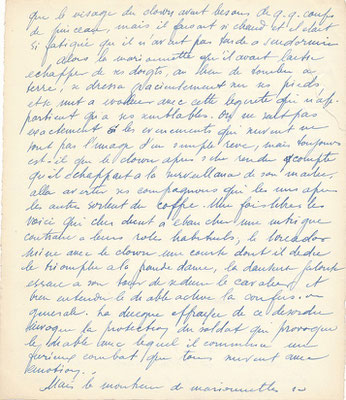 que le visage du clown avait besoin de q.q. coups
de pinceau, mais il faisait si chaud et il était
si fatigué qu'il n'avait pas tardé à s'endormir
Alors la marionnette qu'il avait laissé
échapper de ses doigts, au lieu de tomber à
terre, se dressa gracieusement sur ses pieds
et se mit à évoluer avec cette légèreté qui n'ap-
partient qu'à ses semblables. On ne sait pas
exactement si les événements qui suivent ne
sont pas l'image d'un simple rêve, mais toujours
est-il que le clown après s'être rendu compte
qu'il échappait à la surveillance de son maître,
alla avertir ses compagnons qui les uns après
les autres sortent du coffre. Une fois libres les
voici qui cherchent à ébaucher une intrigue
contraire à leurs rôles habituels, le toreador
mime avec le clown une course dont il dédie
le triomphe à la grande dame, la danseuse jalouse
essaie à son tour de séduire le cavalier, et
bien entendu le diable achève la confusion
générale. La duègne effrayée de ce désordre
invoque la protection du soldat qui provoque
le diable avec lequel il commence un
furieux combat que tous suivent avec
émotion..
Mais le montreur de marionnettes